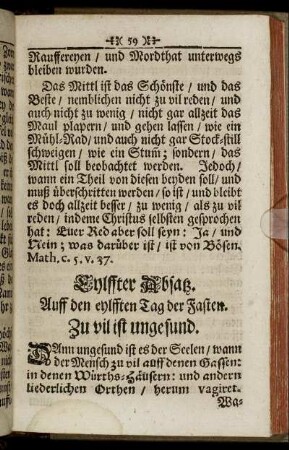 59
Rauffereyen / und Mordthat unterwegs
bleiben wurden.
Das Mittl ist das Schönste / und das
Beste / nemblichen nicht zu vil reden / und
auch nicht zu wenig / nicht gar allzeit das
Maul plapern / und gehen lassen / wie ein
Mühl-Rad / und auch nicht gar Stock-still
schweigen / wie ein Stum; sondern / das
Mittl soll beobachtet werden. Jedoch /
wann ein Theil von diesen beyden soll / und
muß überschritten werden / so ist / und bleibt
es doch allzeit besser / zu wenig / als zu vil
reden / indeme Christus selbsten gesprochen
hat: Euer Red aber soll seyn: Ja / und
Nein; was darüber ist / ist von Bösen.
Math. c. 5. v. 37.
Eylffter Absatz.
Auff den eylfften Tag der Fasten.
Zu vil ist ungesund.
DAnn ungesund ist es der Seelen / wann
der Mensch zu vil auff denen Gassen:
in denen Würths-Häusern: und andern
liederlichen Orthen / herum vagiret.
Wa-